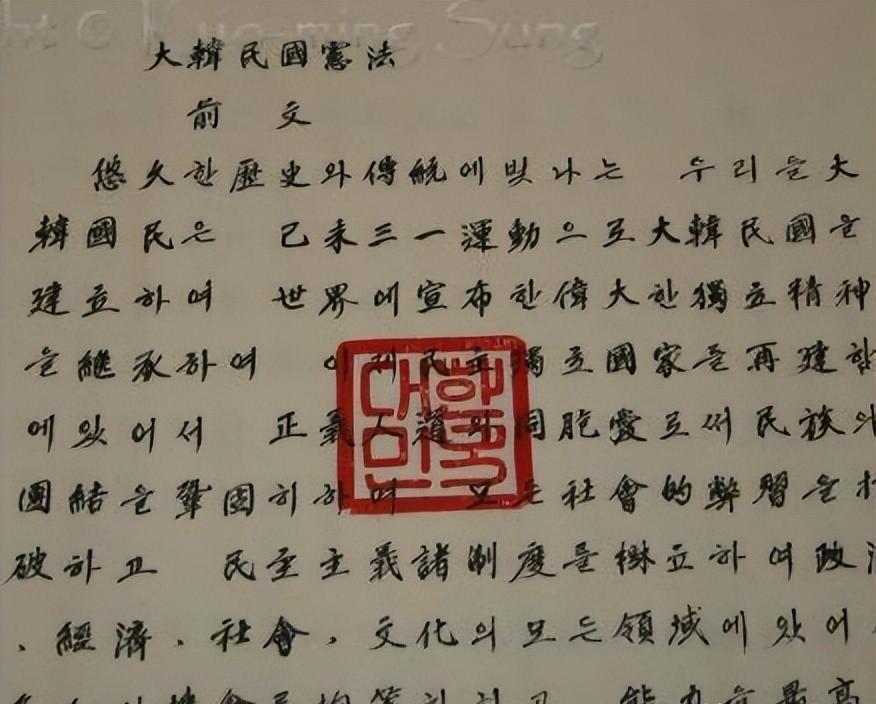 ht © Kuo-ming Sung
大韓民國憲法
前 文
悠久한 歷史와 傳統에 빛나는 우리들 大
韓國民은 己未三一運動으로 大韓民國을
建立하여 世界에 宣布한 偉大한 獨立精神
을 繼承하여 이제 民主獨立國家를 再建함
에 있어서 正義人道와 同胞愛로써 民族의
團結을 鞏固히 하며 모든 社會的 弊習을 打
破하고 民主主義諸制度를 樹立하여 政治
, 經濟, 社會, 文化의 모든 領域에 있어
機會를 均等히 하고 能力을 最高
대한민국